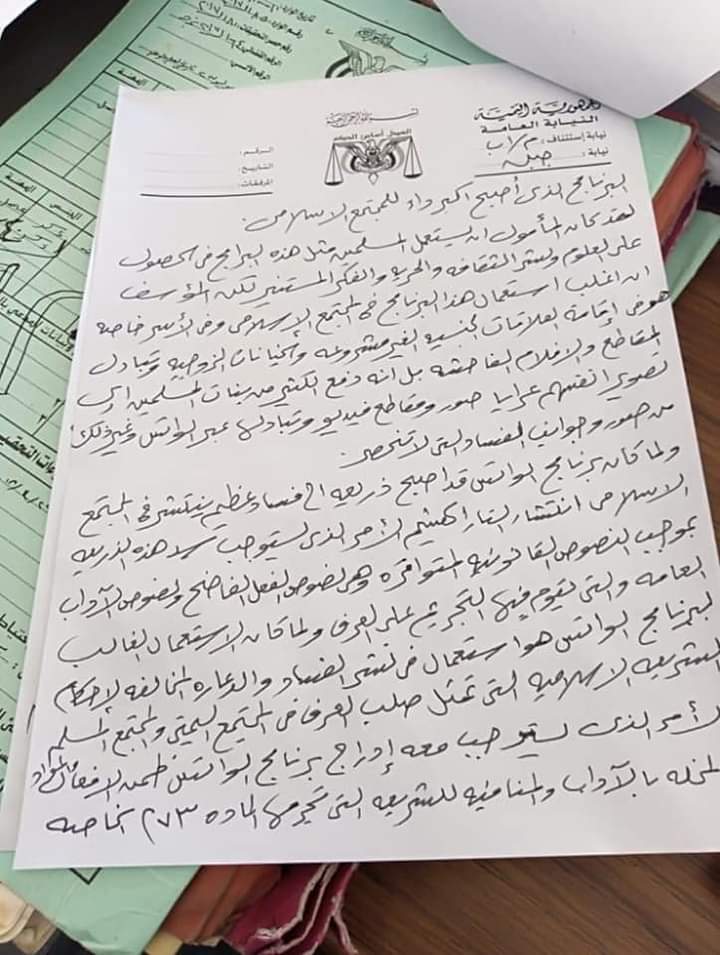 الجمهورية اليمنية
النيابة العامة
نيابة إستئناف: م/إب
نيابة: جبلة
بسم الله الرحمن الرحيم
العدل أساس الحكم
الرقم:
التاريخ:
المرفقات:
البرنامج الذي أصبح اكبر داء للمجتمع الاسلامي.
لقد كان المأمول ان يستعمل المسلمين مثل هذه البرامج في الحصول
على العلوم ونشر الثقافه والحريه والفكر المستنير لكن المؤسف
ان اغلب استعمال هذا البرنامج في المجتمع الإسلامي وفي الأسر خاصه
هو في إقامة العلاقات الجنسيه الغير مشروعه والخيانات الزوجيه وتبادل
المقاطع والافلام الفاحشه بل انه دفع الكثير من بنات المسلمين إلى
تصوير انفسهم عرايا صور ومقاطع فيديو وتبادلها عبر الواتس وغير ذلك
من صور وجوانب الفساد التي لا تنحصر.
ولما كان برنامج الواتس قد اصبح ذريعه الى فساد عظيم ينتشر في المجتمع
الاسلامي انتشار النار في الهشيم الأمر الذي يستوجب سد هذه الذريعه
بموجب النصوص القانونيه المتوافره وهي نصوص الفعل الفاضح ونصوص الآداب
العامه والتي يقوم فيها التجريم على العرف ولما كان الاستعمال الغالب
لبرنامج الواتس هو استعمال في نشر الفساد والدعاره المخالفه لإحكام
الشريعه الاسلاميه التي تمثل صلب العرف في المجتمع اليمني والمجتمع المسلم
الأمر الذي يستوجب معه إدراج برنامج الواتس ضمن الافعال والمواد
المخله بالآداب والمنافيه للشريعه التي تجرمها الماده ٢٧٣ الخاصه